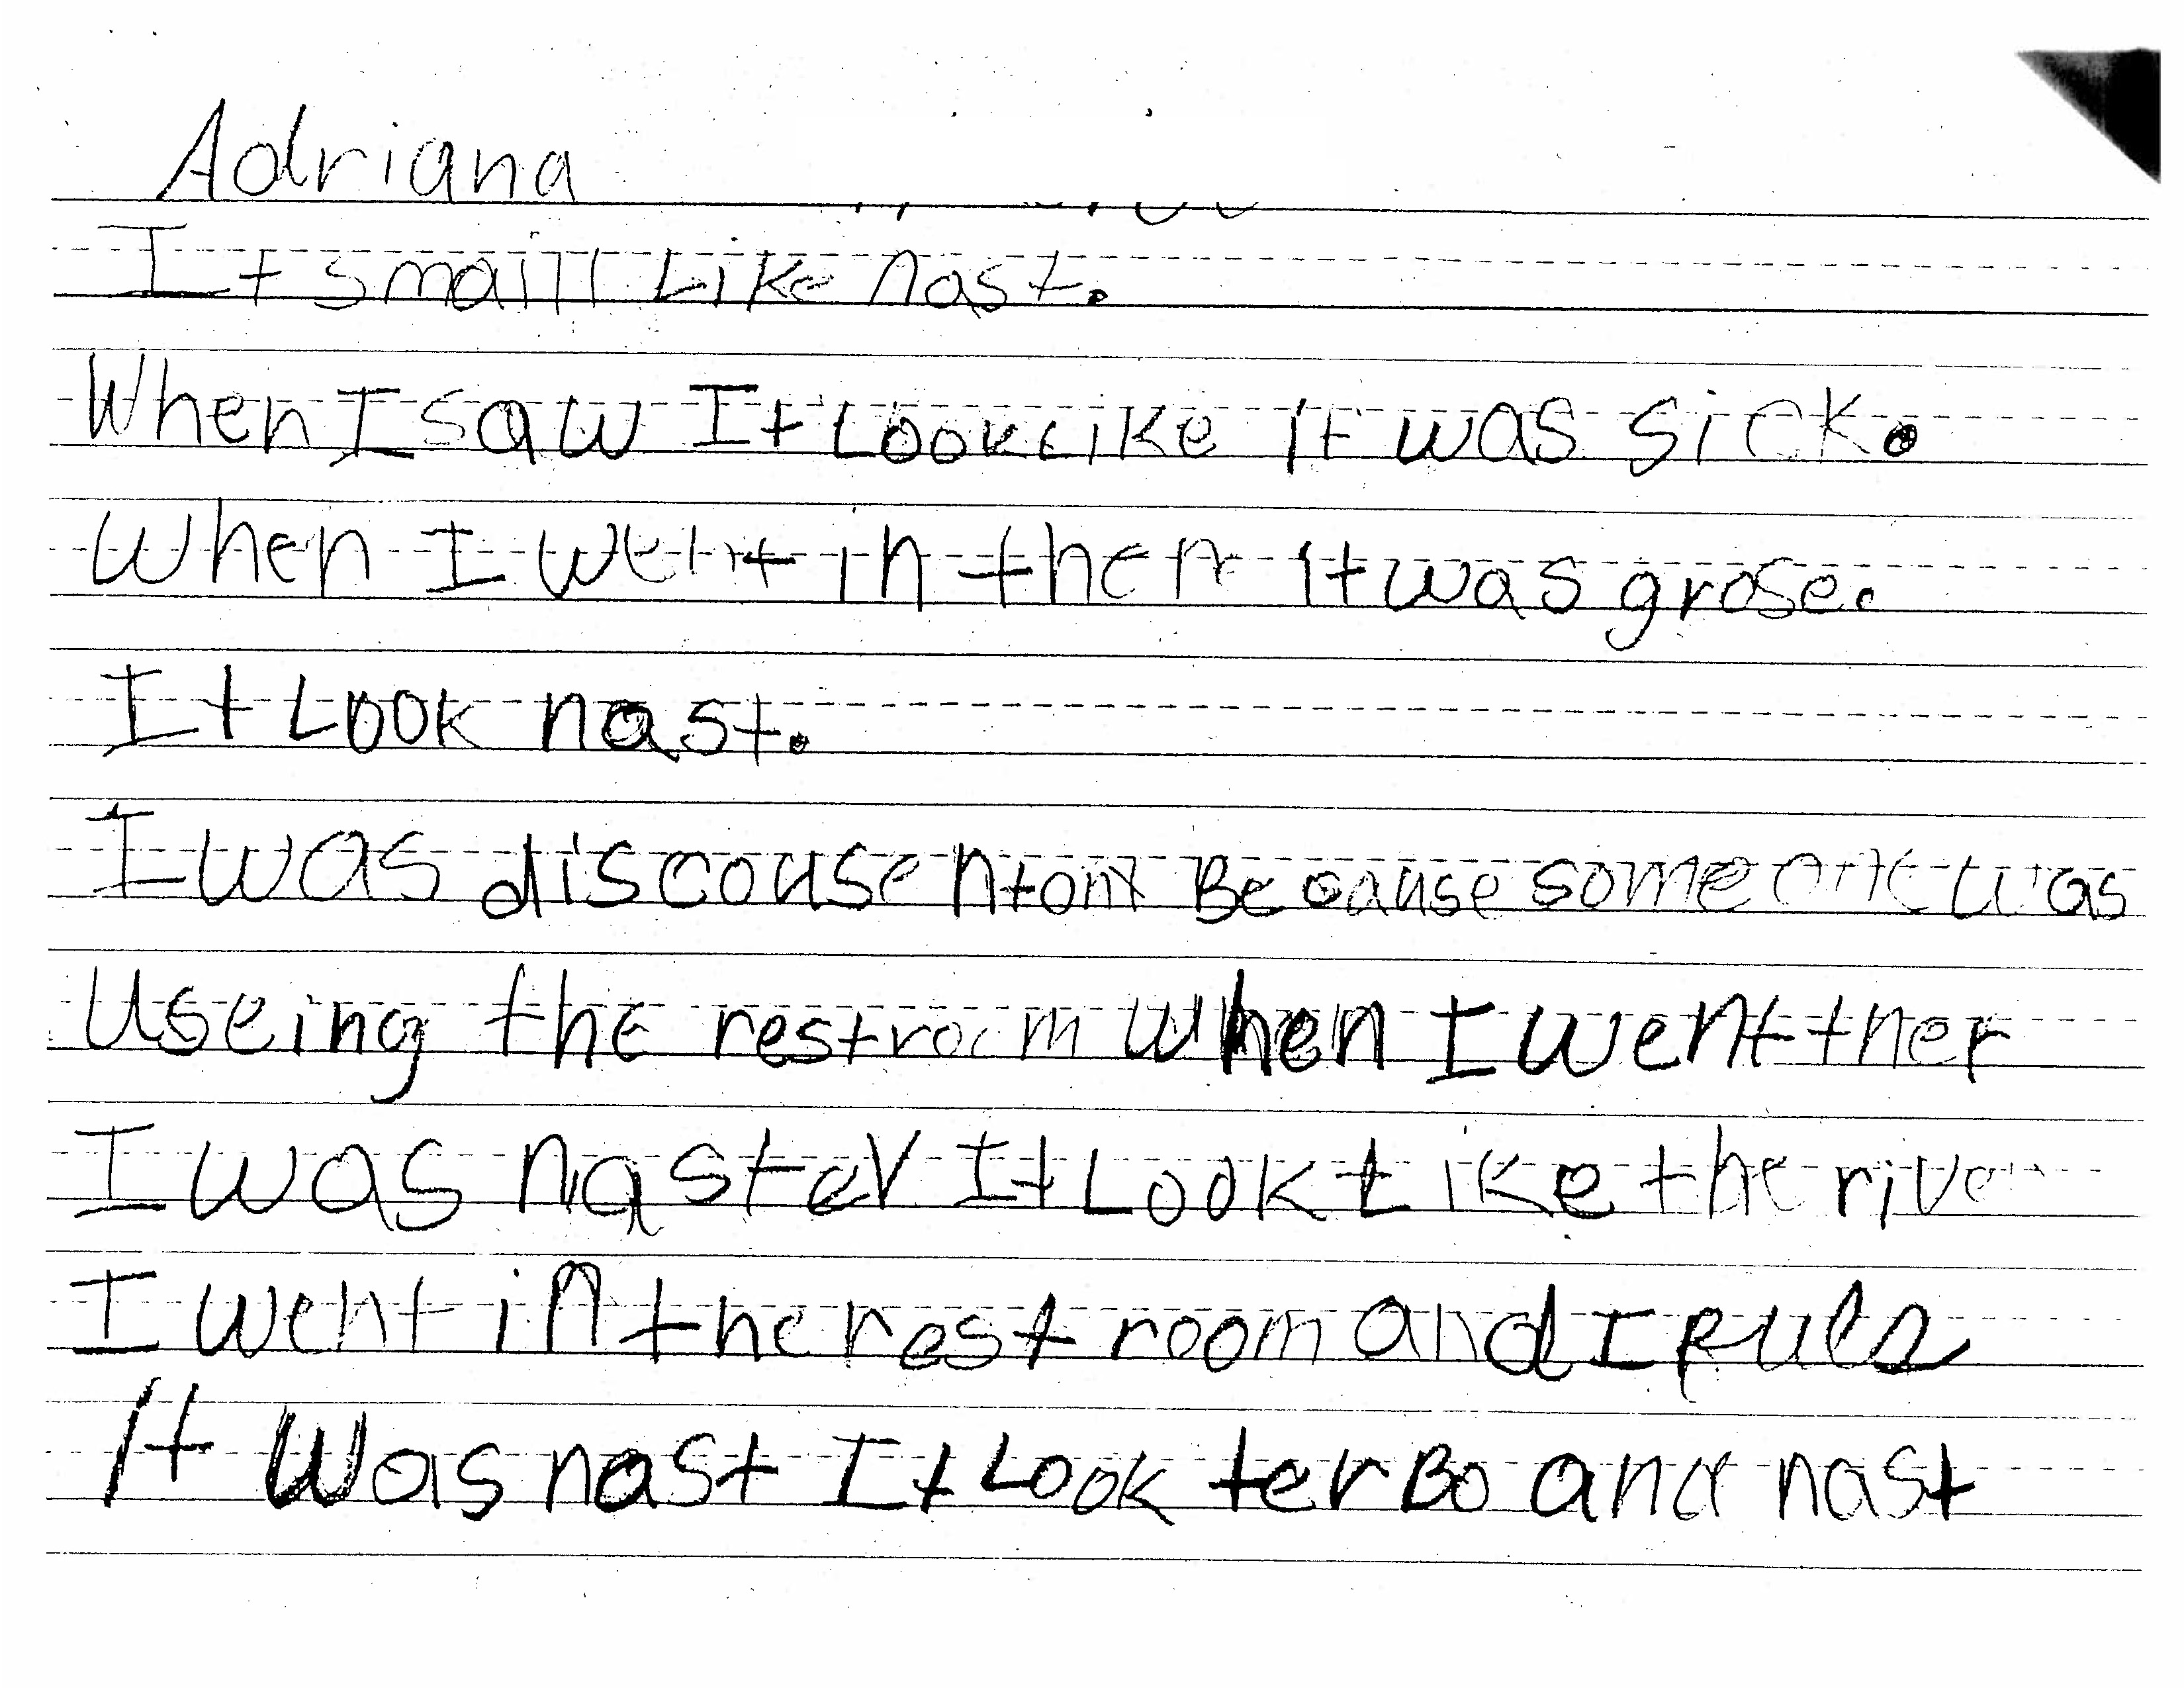 Adriana
It smaill Like nast.
When I saw It Look Like it was sick.
When I went in ther it was grose.
It Look nast.
I was discousentont Because someone was
Useing the restroom when I went ther
I was nastey It Look Like the river
I went in the rest room and I
It was nast It Look terBo and nast